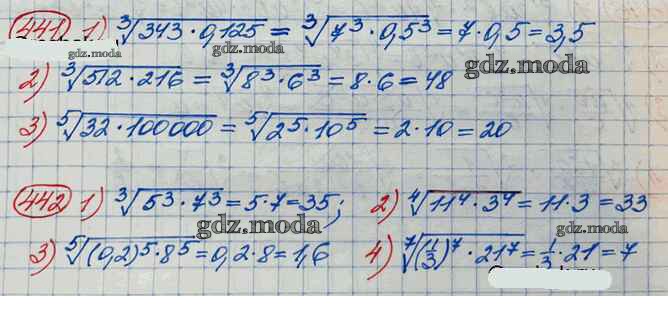 441 1) ∛(343 · 0,125) = ∛(7³ · 0,5³) = 7 · 0,5 = 3,5
gdz.moda
gdz.moda gdz.moda
2) ∛(512 · 216) = ∛(8³ · 6³) = 8 · 6 = 48
gdz.moda
3) ⁵√(32 · 100000) = ⁵√(2⁵ · 10⁵) = 2 · 10 = 20
442 1) ∛(5³ · 7³) = 5 · 7 = 35; 2) ⁴√(11⁴ · 3⁴) = 11 · 3 = 33
gdz.moda gdz.moda
3) ⁵√((0,2)⁵ · 8⁵) = 0,2 · 8 = 1,6 4) ⁷√((1/3)⁷ · 21⁷) = 1/3 · 21 = 7